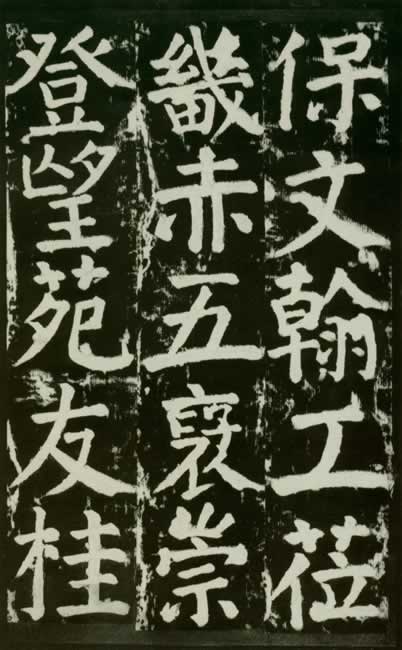 保文翰工莅
畿赤五褒崇
登望苑友桂